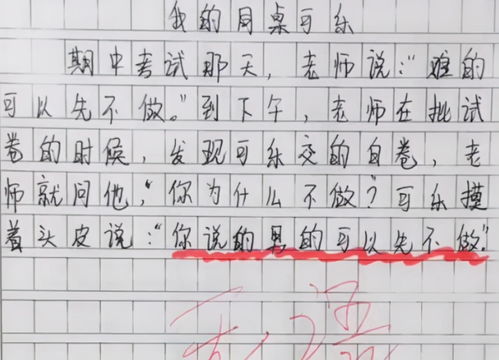 我的同桌可乐
期中考试那天，老师说：“难的
可以先不做。”到下午，老师在批试
卷的时候，发现可乐交的白卷，老
师就问他，“你为什么不做？可乐摸
着头皮说：“你说的的可以先不做”
无语